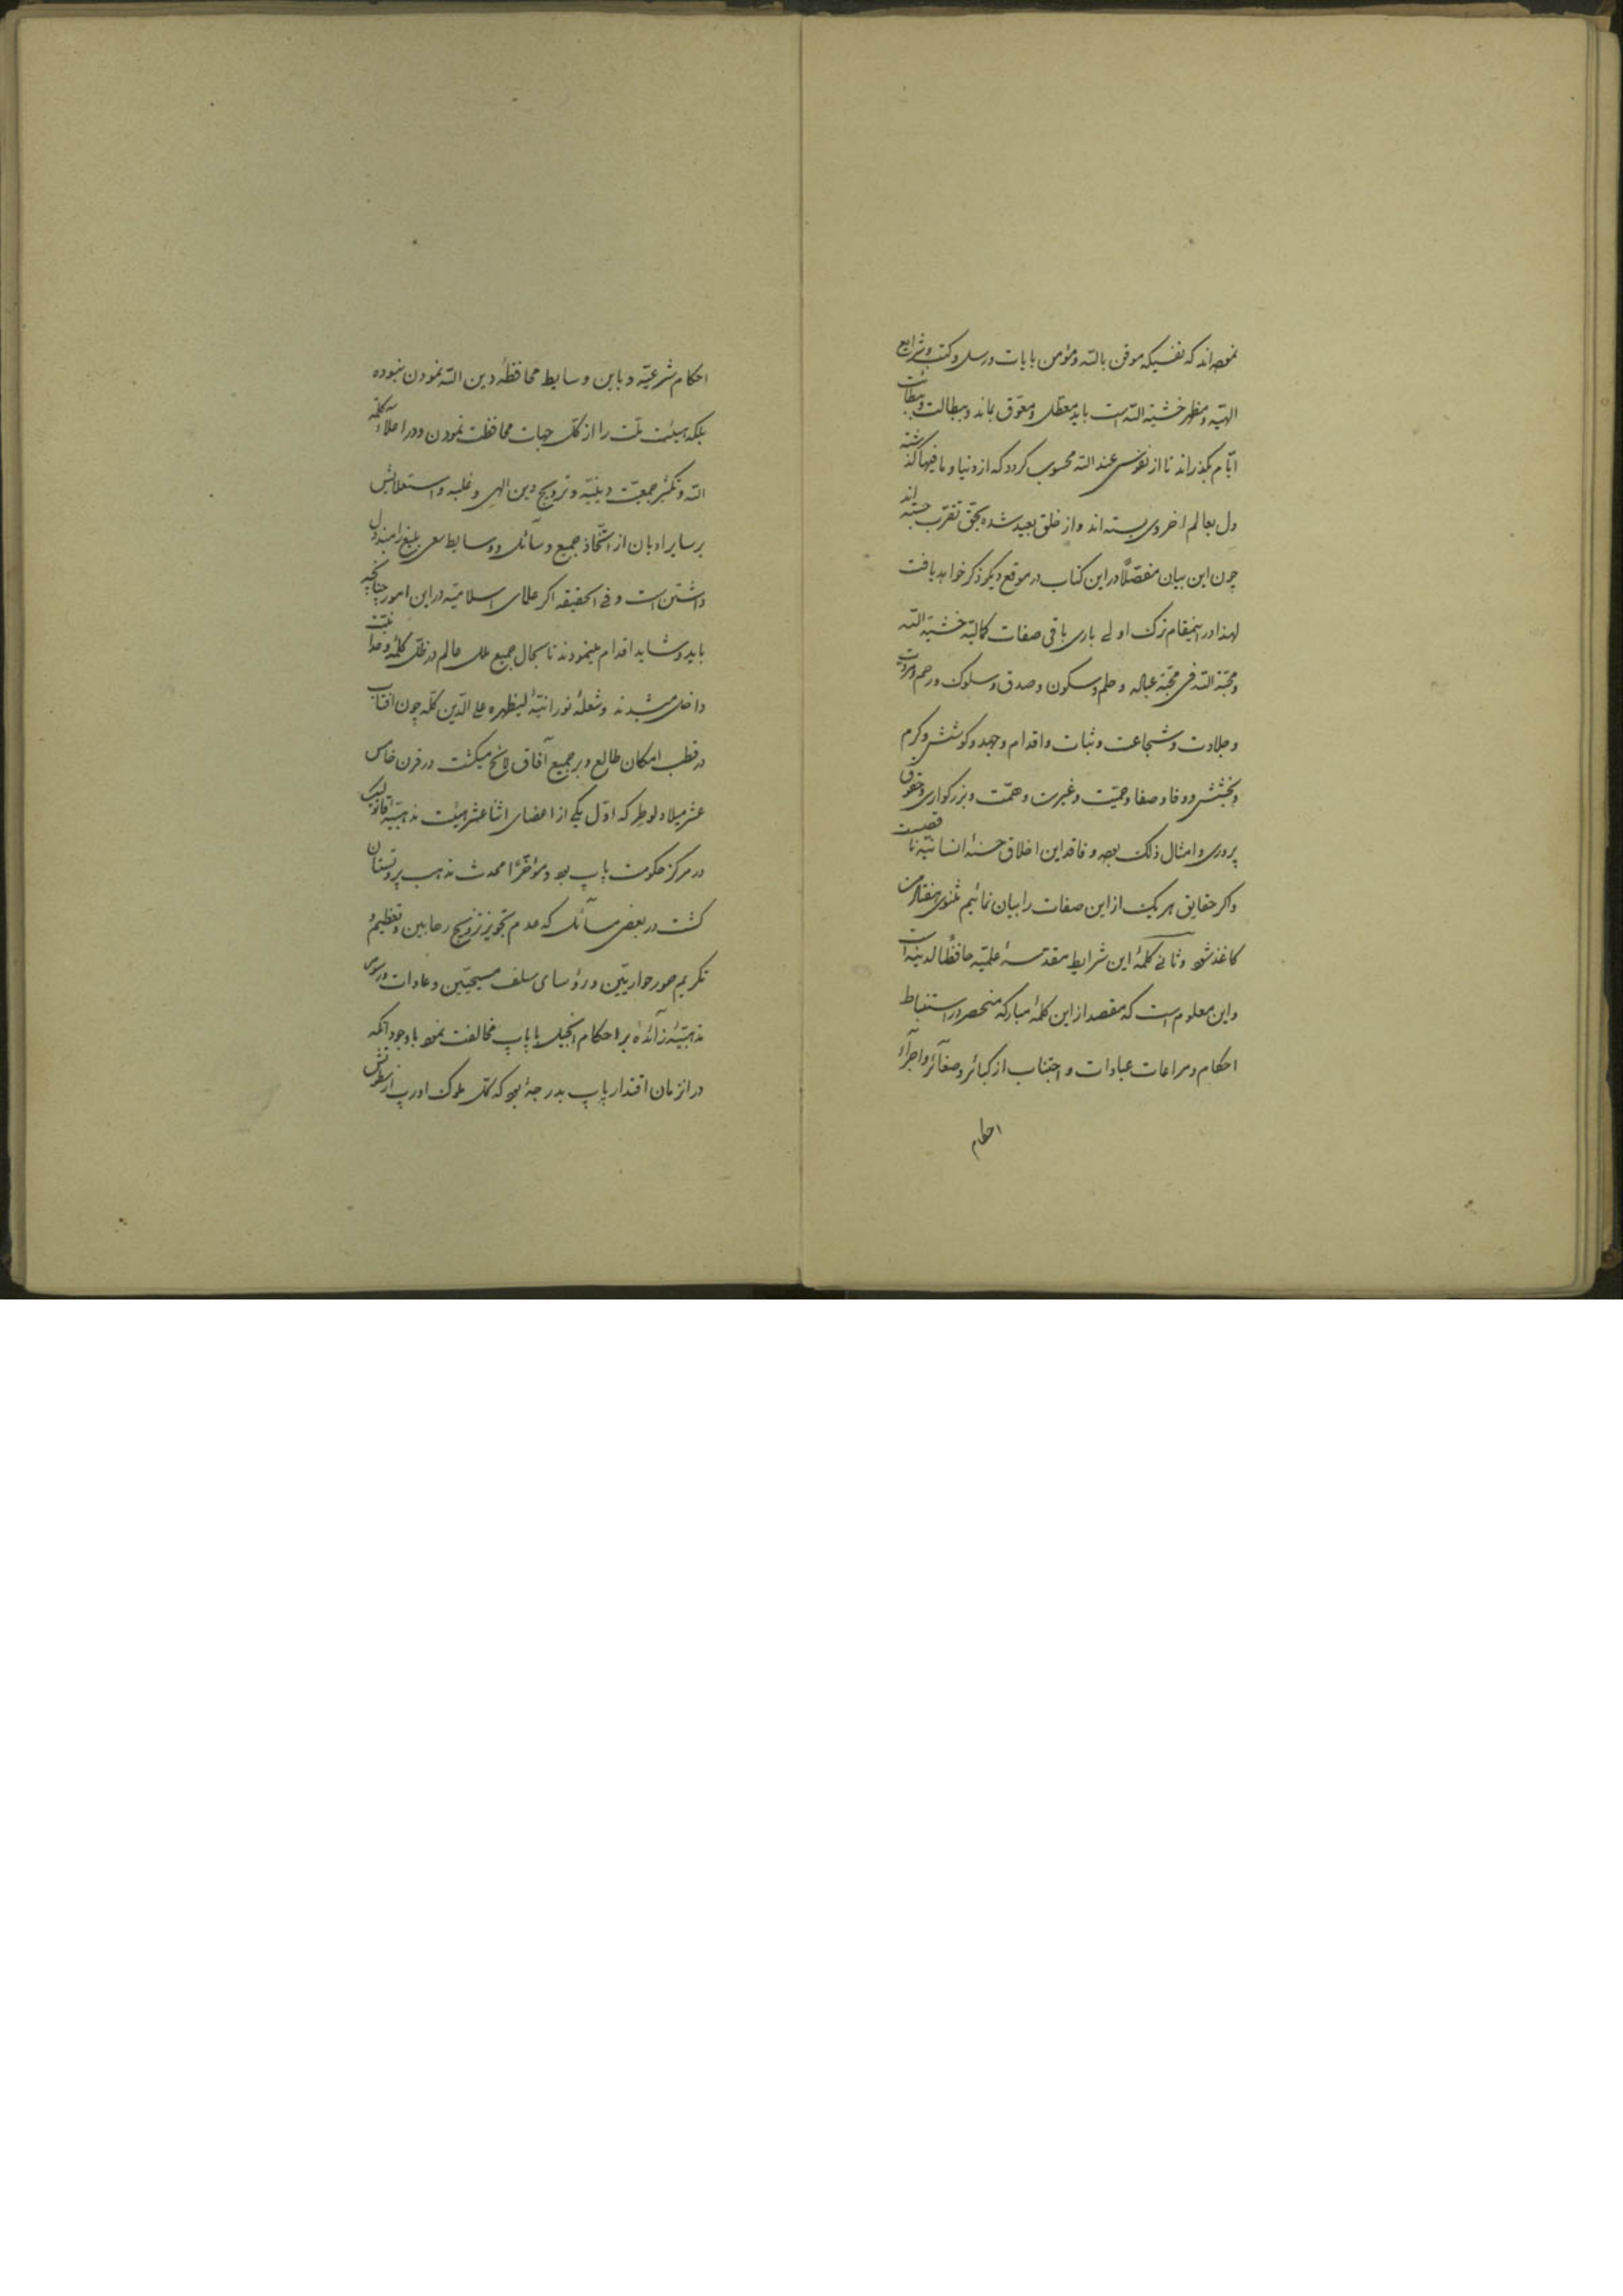 نموده‌اند که نفسیکه موقن بالله و مؤمن بایات و رسل و کتب و شرایع
الهیّه و مظهر خشیة الله است باید معطّل و معوّق بماند و ببطالت و بطائت
ایّام بگذراند تا از نفوسی عند الله محسوب کردد که از دنیا و ما فیها گذشته
دل بعالم اخروی بسته‌اند و از خلق بعید شده بحق تقرب جسته‌اند
چون این بیان مفصّلاً در این کتاب در موقع دیکر ذکر خواهد یافت
لهذا در اینمقام ترک اولی باری باقی صفات کمالیّه خشیة الله
و محبّة الله فی محبّة عباله و حلم و سکون و صدق و سلوک و رحم و مروت
و جلادت و شجاعت و ثبات و اقدام و جهد و کوشش و کرم
و بخشش و وفا و صفا و حمیّت و غیرت و همّت و بزرکواری و حقوق
پروری و امثال ذلک بوده و فاقد این اخلاق حسنهٔ انسانیّه ناقص است
و اکر حقایق هر یک از این صفات را بیان نمائیم مثنوی هفتاد من
کاغذ شود و ثانی کلمهٔ این شرایط مقدّسهٔ علمیّه حافظاً لدینه است
و این معلوم است که مقصد از این کلمهٔ مبارکه منحصر در استنباط
احکام و مراعات عبادات و اجتناب از کبائر و صغآئر و اجرآء
احکام
احکام شرعیّه و باین وسایط محافظهٔ دین الله نمودن نبوده
بلکه هیئت ملّت را از کلّ جهات محافظت نمودن و در اعلآء کلمة
الله و تکثیر جمعیّت دینیّه و ترویج دین الهی و غلبه و استعلایش
بر سایر ادیان از اتّخاذ جمیع وسآئل و وسایط سعی بلیغ را مبذول
داشتن است و فی الحقیقه اکر علمای اسلامیّه در این امور چنانچه
باید و شاید اقدام مینمودند تا بحال جمیع ملل عالم در ظلّ کلمهٔ وحدانیّت
داخل میشدند و شعلهٔ نورانیّهٔ لیظهره علی الدّین کلّه چون افتاب
در قطب امکان طالع و بر جمیع آفاق لائح میکشت در قرن خامس
عشر میلاد لوطر که اوّل یکی از اعضای اثنا عشر هیئت مذهبیّهٔ قاتولیک
در مرکز حکومت پاپ بود و مؤخّراً محدث مذهب پروتستان
کشت در بعض مسآئل که عدم تجویز تزویج رهابین و تعظیم و
تکریم صور حواریّین و رؤسای سلف مسیحیّین و عادات و رسوم
مذهبیّهٔ زآئدهٔ بر احکام انجیل با پاپ مخالفت نمود با وجود انکه
در انزمان اقتدار پاپ بدرجهٔ بود که کلّ ملوک اورپ از سطوتش